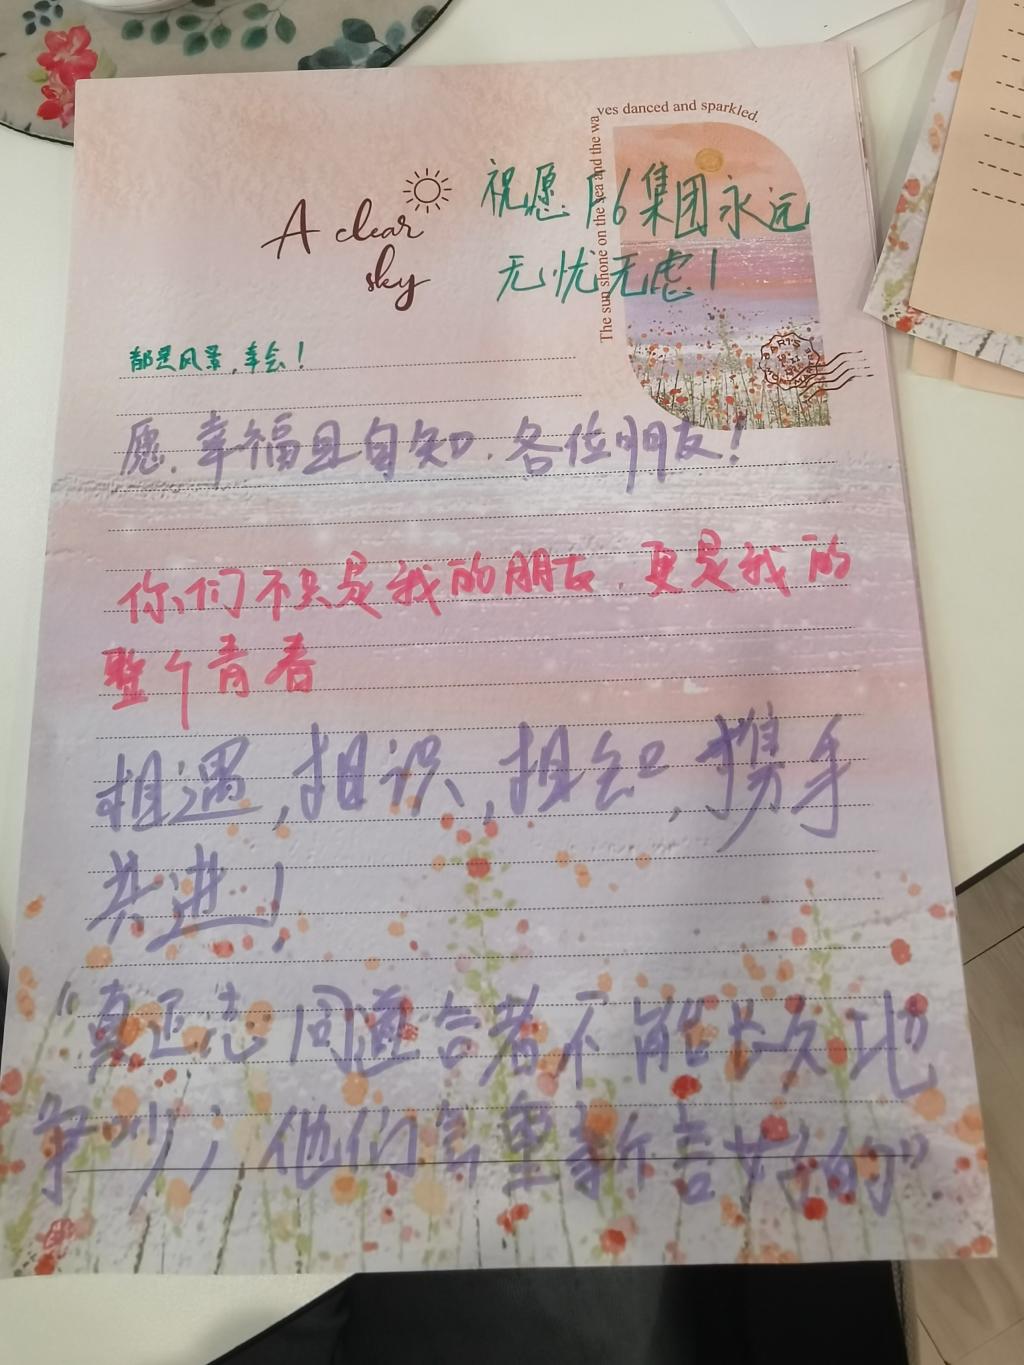 The sun shone on the sea and the waves danced and sparkled.
A clear
sky
祝愿 F6集团永远
无忧无虑!
都是风景,幸会!
愿.幸福且自知.各位朋友!
你们不只是我的朋友.更是我的
整个青春
相遇,相识,相知,携手
共进!
"真正志同道合者不能长久地
争吵;他们会重新言好的"
PARIS